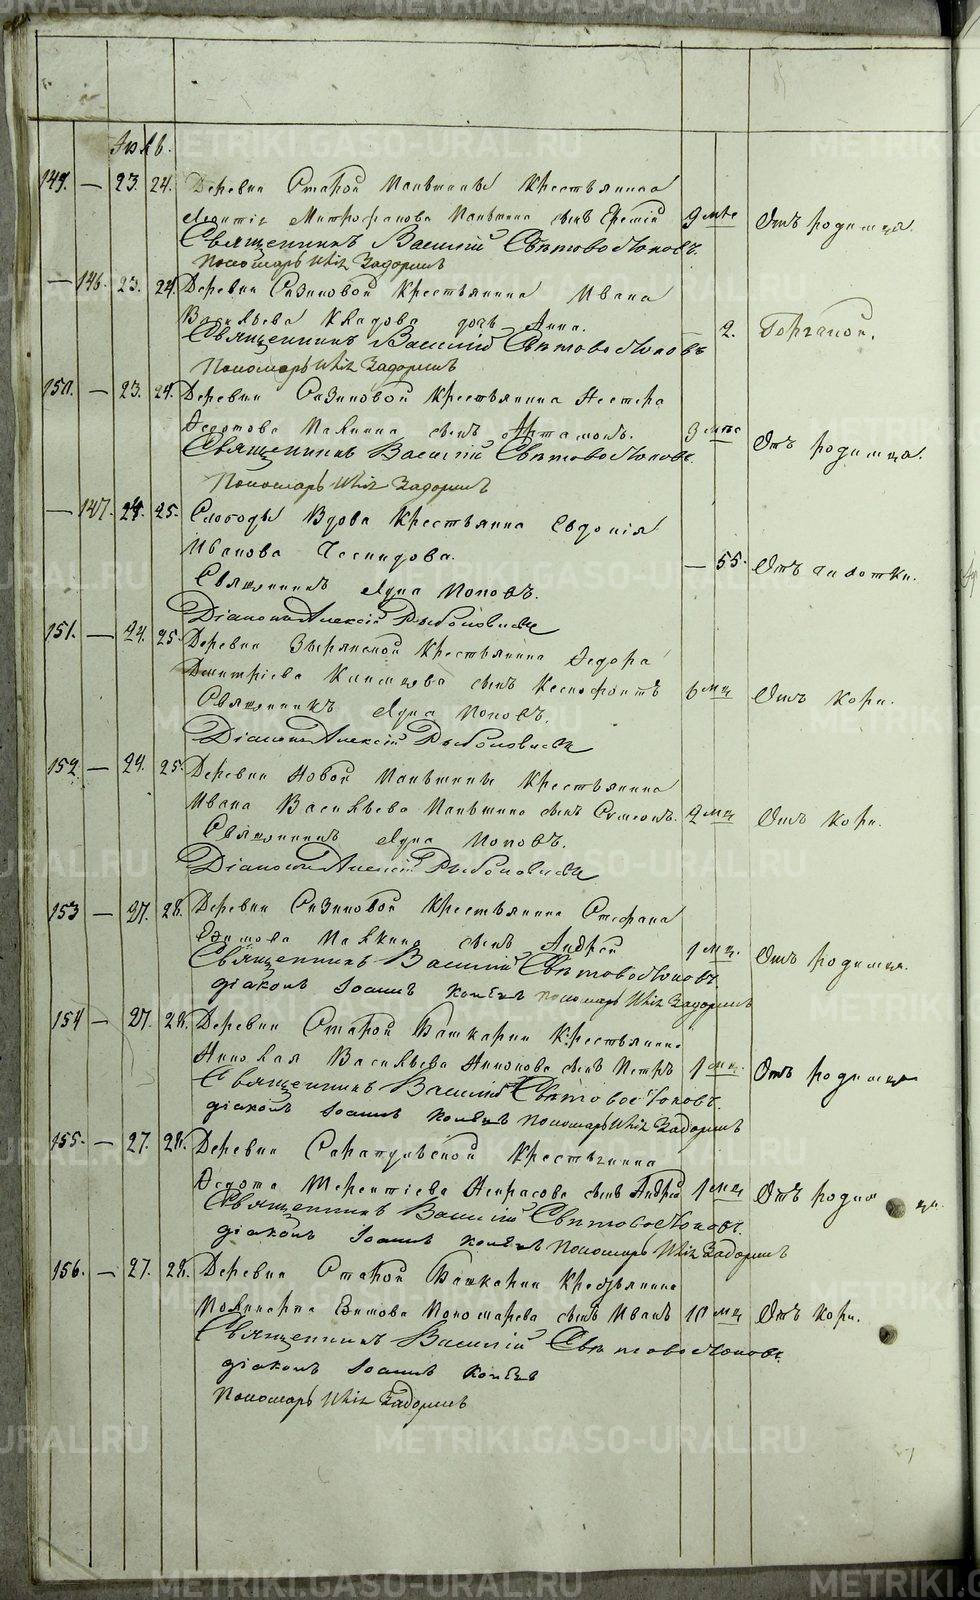 Июль.
149. — 23. 24. Деревни Старой Паньшины Крестьянина
Леонтія Митрофанова Паньшина сынъ Ерміи 9 мѣс Отъ родимца.
Священникъ Василій Свѣтовостоковъ.
Пономарь Илія Задоринъ
— 146. 23. 24. Деревни Сизиковой Крестьянина Ивана
Васильева Кладова дочь Анна. — 2. Горячкой.
Священникъ Василій Свѣтовостоковъ
Пономарь Илія Задоринъ
150. — 23. 24. Деревни Сизиковой Крестьянина Нестера
Ѳедотова Палкина сынъ Артамонъ. 3 мѣс Отъ родимца.
Священникъ Василій Свѣтовостоковъ.
Пономарь Илія Задоринъ
— 147. 24. 25. Слободы Вдова Крестьянка Евдокія
Иванова — 55. Отъ чахотки.
Священникъ Лука Поповъ.
Діаконъ Алексій Рыболовлевъ
151. — 24. 25. Деревни Зырянской Крестьянина Ѳедора
Дмитріева сынъ Ксенофонтъ 6 мц Отъ кори.
Священникъ Лука Поповъ.
Діаконъ Алексій Рыболовлевъ
152 — 24. 25. Деревни Новой Паньшины Крестьянина
Ивана Васильева Паньшина сынъ Симеонъ. 2 мц Отъ кори.
Священникъ Лука Поповъ.
Діаконъ Алексій Рыболовлевъ
153 — 27. 28. Деревни Сизиковой Крестьянина Стефана
Ефимова Палкина сынъ Андрей 1 мц. Отъ родимца.
Священникъ Василій Свѣтовостоковъ.
діаконъ Іоаннъ Пономарь Илія Задоринъ
154 — 27. 28. Деревни Старой Башкарки Крестьянина
Николая Васильева сынъ Петръ 1 мц. Отъ родимца
Священникъ Василій Свѣтовостоковъ.
діаконъ Іоаннъ Пономарь Илія Задоринъ
155. — 27. 28. Деревни Сарапульской Крестьянина
Ѳедота Терентіева Некрасова сынъ Андрей 1 мц Отъ родимца.
Священникъ Василій Свѣтовостоковъ.
діаконъ Іоаннъ Пономарь Илія Задоринъ
156. — 27. 28. Деревни Старой Башкарки Крестьянина
Поликарпа Ефимова Пономарева сынъ Иванъ 10 мц Отъ кори.
Священникъ Василій Свѣтовостоковъ.
діаконъ Іоаннъ
Пономарь Илія Задоринъ
METRIKI.GASO-URAL.RU